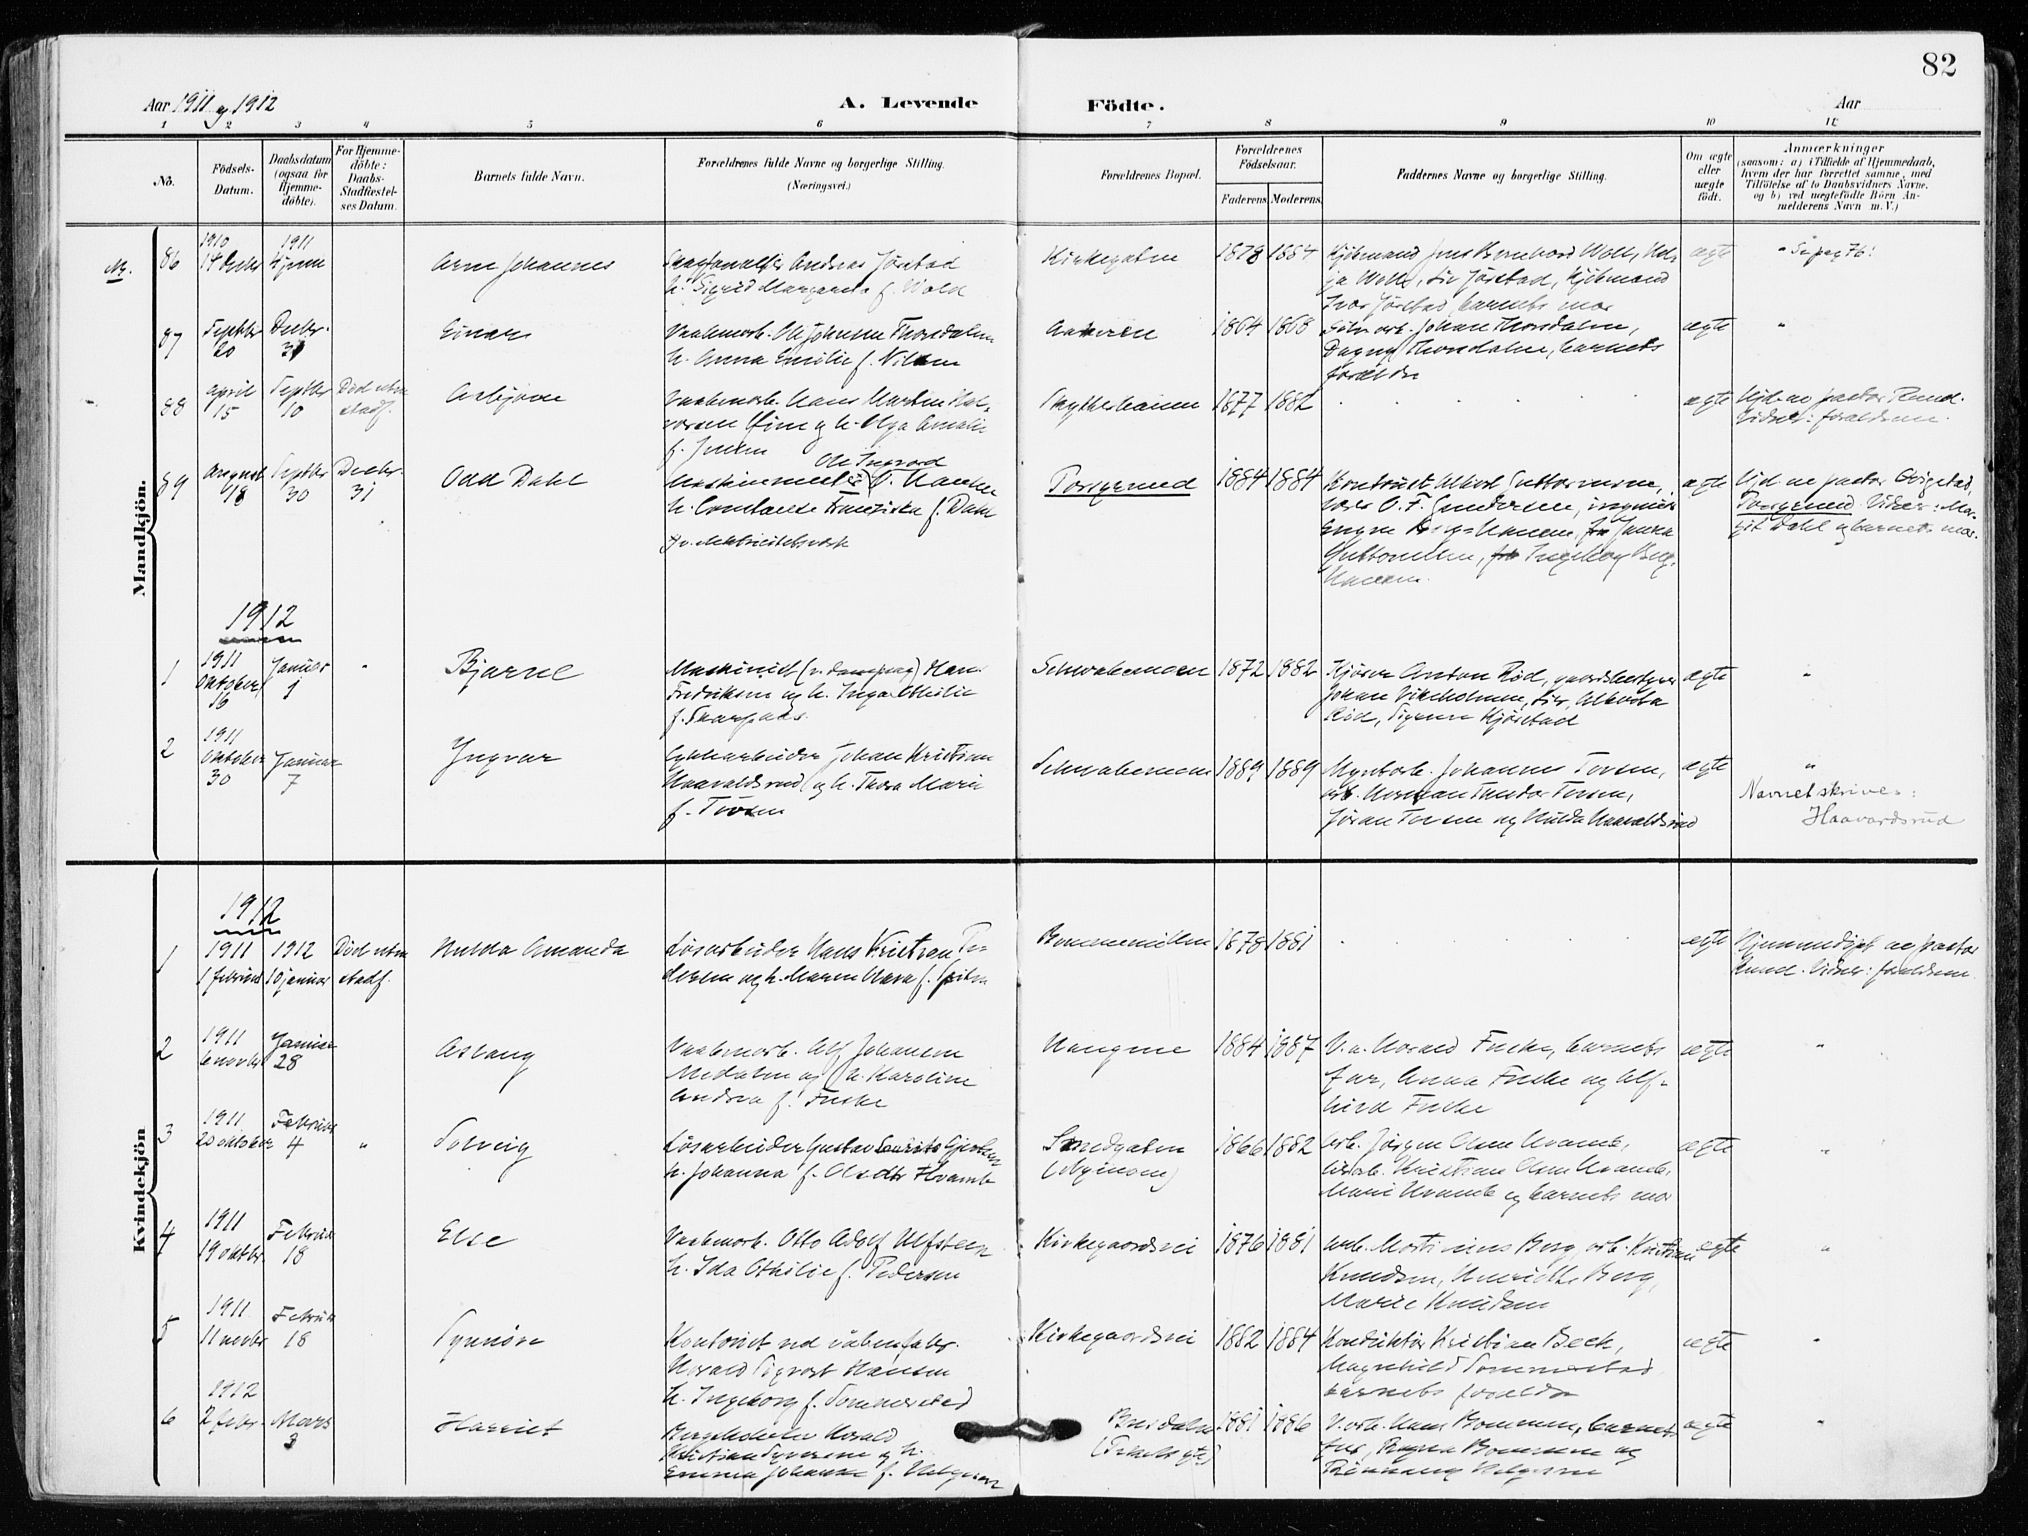 82
Aar 1911 og 1912
A. Levende
Födte.
Aar
1 2 3 4 5 6 7 8 9 10 11
No.
Födsels-
Datum.
Daabsdatum
(ogsaa for
Hjemme-
döbte).
For Hjemme-
döbte:
Daabs-
Stadfæstel-
ses Datum.
Barnets fulde Navn.
Forældrenes fulde Navne og borgerlige Stilling.
(Næringsvei.)
Forældrenes Bopæl.
Forældrenes
Födselsaar.
Faderens
Moderens
Faddernes Navne og borgerlige Stilling.
Om ægte
eller
uægte
födt.
Anmærkninger
(saasom: a) i Tilfælde af Hjemmedaab,
hvem der har forrettet samme, med
Tilföielse af to Daabsvidners Navne,
og b) ved uægtefödte Börn An-
melderens Navn m. V.)
Mandkjön.
86
1910
14 Decbr
1911
4 juni
Arne Johannes
Andreas Jørstad
h. Sigrid Margareta f. Wold
Kirkegaten
1878
1884
Kjøbmand Jens Bernhard Wold, Hel-
ga Wold, Siv Jørstad, Kjøbmand
Ivar Jørstad, barnets mor
ægte
" Se pag 76!
87
Septbr
20
Decbr.
31
Einar
Vaabenarb. Ole Johansen Thorsdalen
h. Anna Emilie f. Nilsen
1864
1868
Johan Thorsdalen,
Dagny Thorsdalen, barnets
forældre
ægte
"
88
April
15
Septbr
10
Død uten
stadf.
Asbjørn
Vaabenarb. Hans Martin Hal-
vorsen og h. Olga Amalie
f. Jensen
1877
1882
ægte
Hjd. av pastor Rund.
Vidner: forældrene.
89
August
18
Septbr
30
Decbr.
31
Odd Dahl
Ole Ingvard
Maskinmester O. Hansen
h. Constance Franziska f. Dahl
v. elektricitetsverk
Torsgerud
1884
1884
Kontorist Albert Guttormsen,
O. F. Gundersen, ingeniør
Hansen, fr Janka
Guttormsen, frk Ingeborg Berg
Hansen.
ægte
Hjd av pastor
Torsgerud. Vidner: Mar-
git Dahl og barnets mor.
1912
1
1911
Oktober
16
Januar
1
"
Bjarne
Maskinist (v. dampsag) Hans
Fredriksen og h. Inga Othilie
f. Skarpaas.
Schwabesmoen
1872
1882
Kjører Anton Rød, gaardsbestyrer
Johan Vikeholmen, Alvilda
Rød, Signe Kjørstad
ægte
"
2
1911
Oktober
30
Januar
7
Yngvar
Cykkelarbeider Johan Kristian
Haavaldsrud og h. Thora Marie
f. Torsen
Schwabesmoen
1889
1889
Myntarb. Johannes Torsen,
arb. Herman Teodor Torsen,
Jøran Torsen og Hulda Haavaldsrud
ægte
"
Navnet skrives:
Haavardsrud
Kvindekjön
1912
1
1911
1 februar
1912
10 januar
Død uten
stadf.
Hulda Amanda
Løsarbeider Hans Kristian Pe-
dersen og h. Maren Clara f.
Bommemillen
1878
1881
ægte
Hjemmedøpt av pastor
Rund. Vidner: forældrene
2
1911
6 novbr
Januar
28
Aslaug
Vaabenarb. Alf Johansen
Medalen og h. Karoline
Andrea f. Fuske
Haugene
1884
1887
V.a. Harald Fuske, barnets
far, Anna Fuske og Alf-
hild Fuske
ægte
"
3
1911
20 oktober
Februar
4
"
Solveig
Løsarbeider Gustav Laurits Gjertsen
h. Johanna f. Olsdtr Hvamb
Smedgaten
1866
1882
arb. Jørgen Olsen Hvamb,
Kristian Olsen Hvamb,
Marie Hvamb og barnets mor
ægte
"
4
1911
19 oktbr.
Februar
18
Else
Vaabenarb. Otto Adolf Ulfsteen
h. Ida Othilie f. Pedersen
Kirkegaardsvei
1876
1881
arb. Martinius Berg, arb. Kristian
Knudsen, Henriette Berg,
Marie Knudsen
ægte
"
5
1911
11 novbr
Februar
18
Synnøve
Kontorist ved våbenfabr.
Harald Sigvart Hansen
h. Ingeborg f. Sommerstad
Kirkegaardsvei
1882
1884
Konduktør Kristian Beck,
Magnhild Sommerstad
barnets forældre
ægte
"
6
1912
2 febr.
Mars
3
Harriet
Harald
Kristian Syversen og h.
Emma Johanne f. Helgesen
1881
1886
V.arb. Hans Bommen, barnets
far, Ragna Bommen og
Rønnaug Helgesen
ægte
"